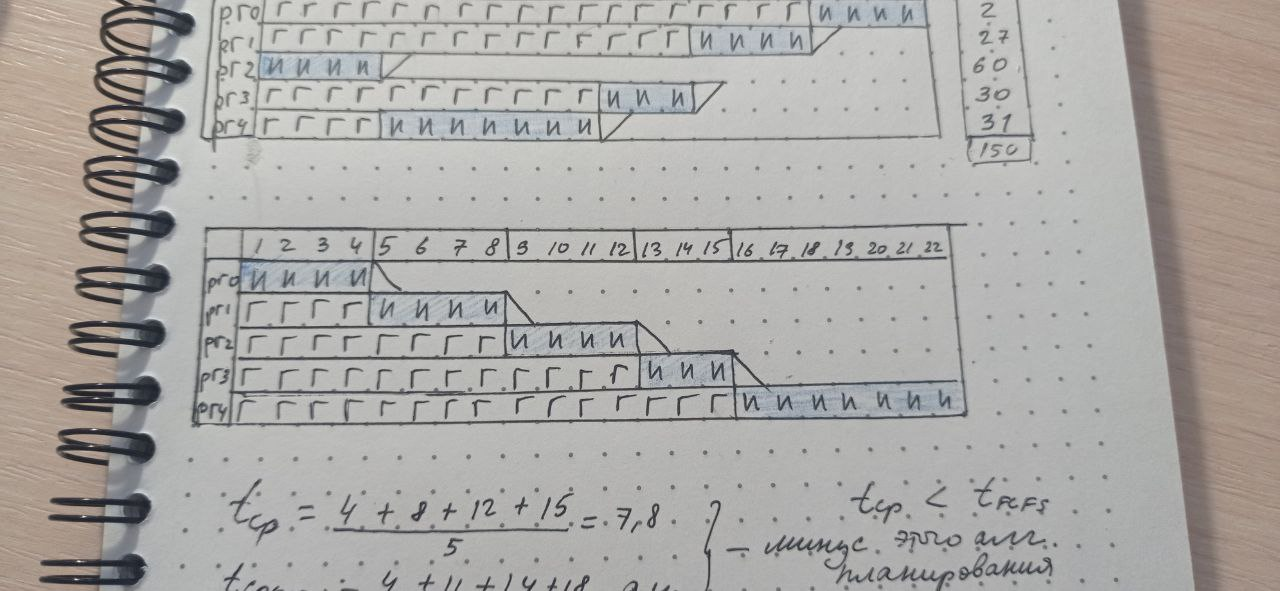 pr0 Г Г Г Г Г Г Г Г Г Г Г Г Г Г Г Г Г Г И И И И 2
pr1 Г Г Г Г Г Г Г Г Г Г Г Г Г Г И И И И 27
pr2 И И И И 60
pr3 Г Г Г Г Г Г Г Г Г Г Г И И И 30
pr4 Г Г Г Г И И И И И И И 31
150
1 2 3 4 5 6 7 8 9 10 11 12 13 14 15 16 17 18 19 20 21 22
pr0 И И И И
pr1 Г Г Г Г И И И И
pr2 Г Г Г Г Г Г Г Г И И И И
pr3 Г Г Г Г Г Г Г Г Г Г Г Г И И И
pr4 Г Г Г Г Г Г Г Г Г Г Г Г Г Г Г И И И И И И И
tср = 4 + 8 + 12 + 15 = 7,8 tср < tFCFS
5
– минус этого алг.
планирования
4 + 11 + 14 + 18